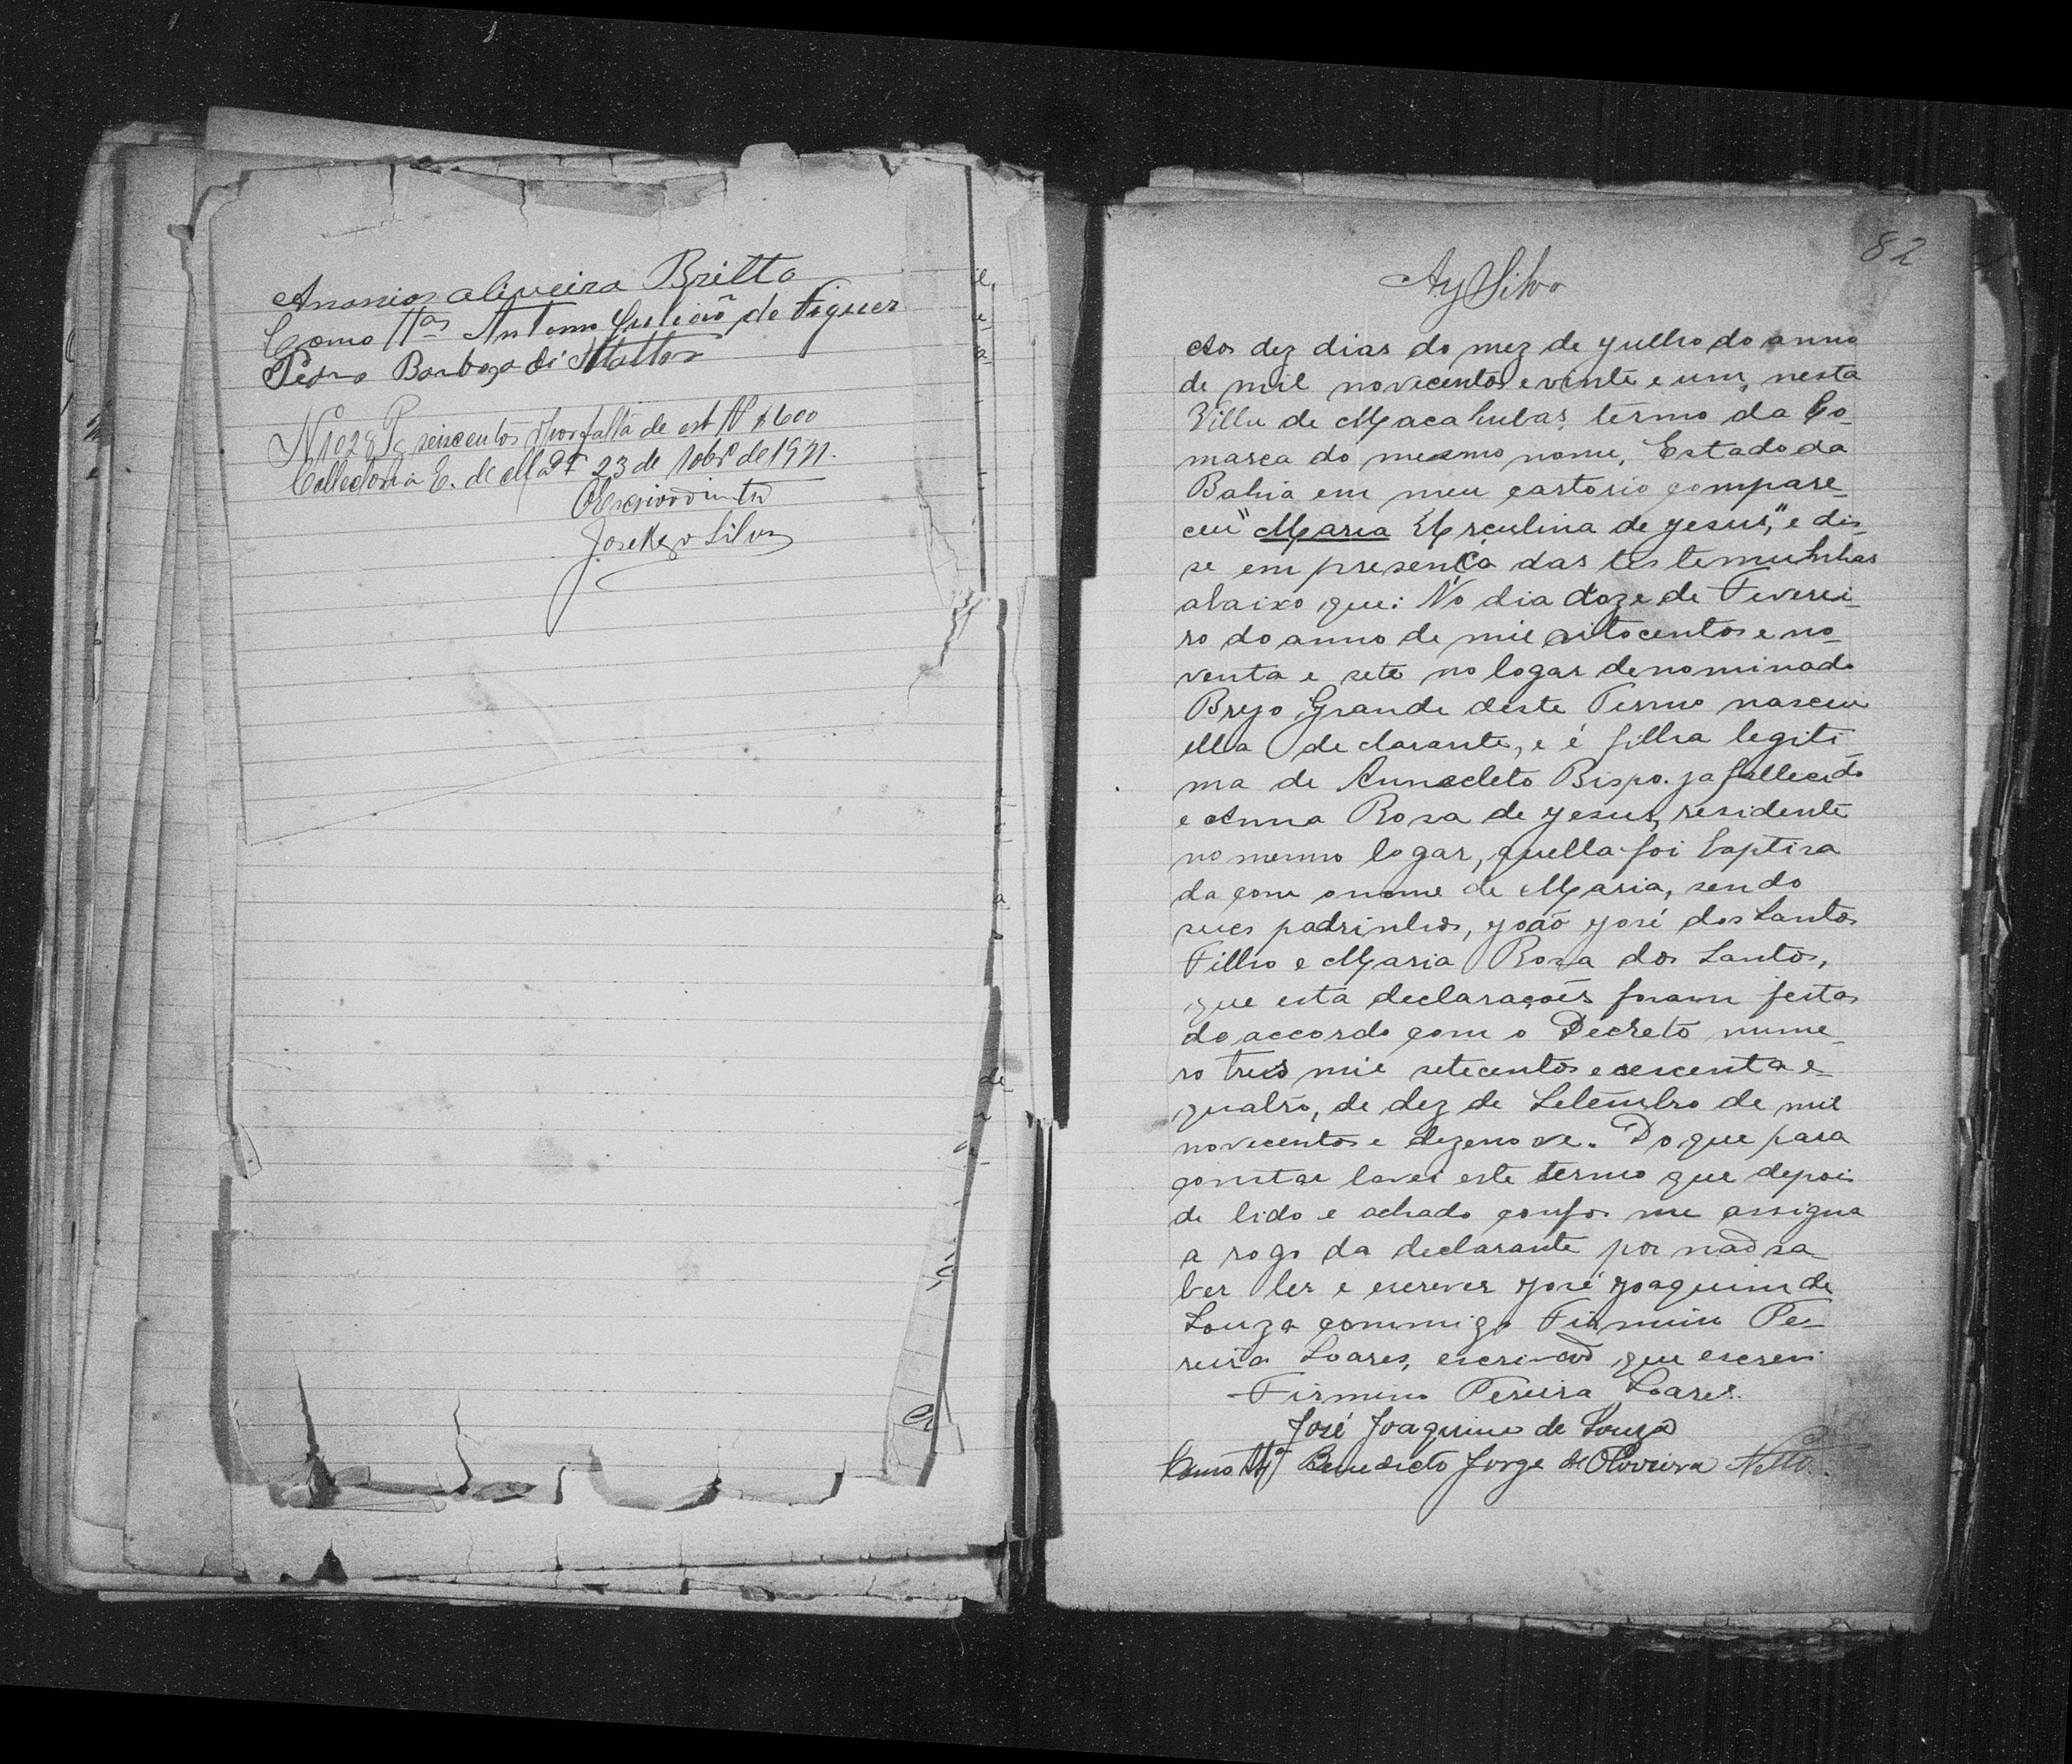 Ananias Oliveira Britto
Como Ttas Antonio de Figuer
Pedro Barboza di Mattos
N 1028 Pg seiscentos por falta de est Nl $600
Collectoria E. de 23 de 10br de 1921.
O Escrivão
José Silva
82
Ay Silva
Aos dez dias do mez de Julho do anno
de mil novecentos e vinte e um, nesta
Villa de Macahubas, termo da Co-
marca do mesmo nome, Estado da
Bahia em meu cartorio compare-
ceu "Maria Urculina de Jesus," e dis-
se em presença das testemunhas
abaixo que: No dia doze de Feverei-
ro do anno de mil oitocentos e no-
venta e sete no logar denominado
Brejo Grande deste Termo nasceu
ella declarante, e é filha legiti-
ma de Annacleto Bispo. ja fallecido
e Anna Rosa de Jesus, residente
no mesmo logar, quella foi baptisa
da com o nome de Maria, sendo
seus padrinhos, João José dos Santos
Filho e Maria Rosa dos Santos,
que esta declarações foram feitas
do accordo com o Decreto nume-
ro tres mil setecentos e sescenta e-
quatro, de dez de Setembro de mil
novecentos e dezenove. Do que para
constar lavrei este termo que depois
de lido e achado confor me assigna
a rogo da declarante por não sa
ber ler e escrever José Joaquim de
Souza commigo Firmino Pe-
reira Soares, escrivão que escrevi
Firmino Pereira Soares.
José Joaquim de Souza
Como Tta Benedicto Jorge de Oliveira Netto.